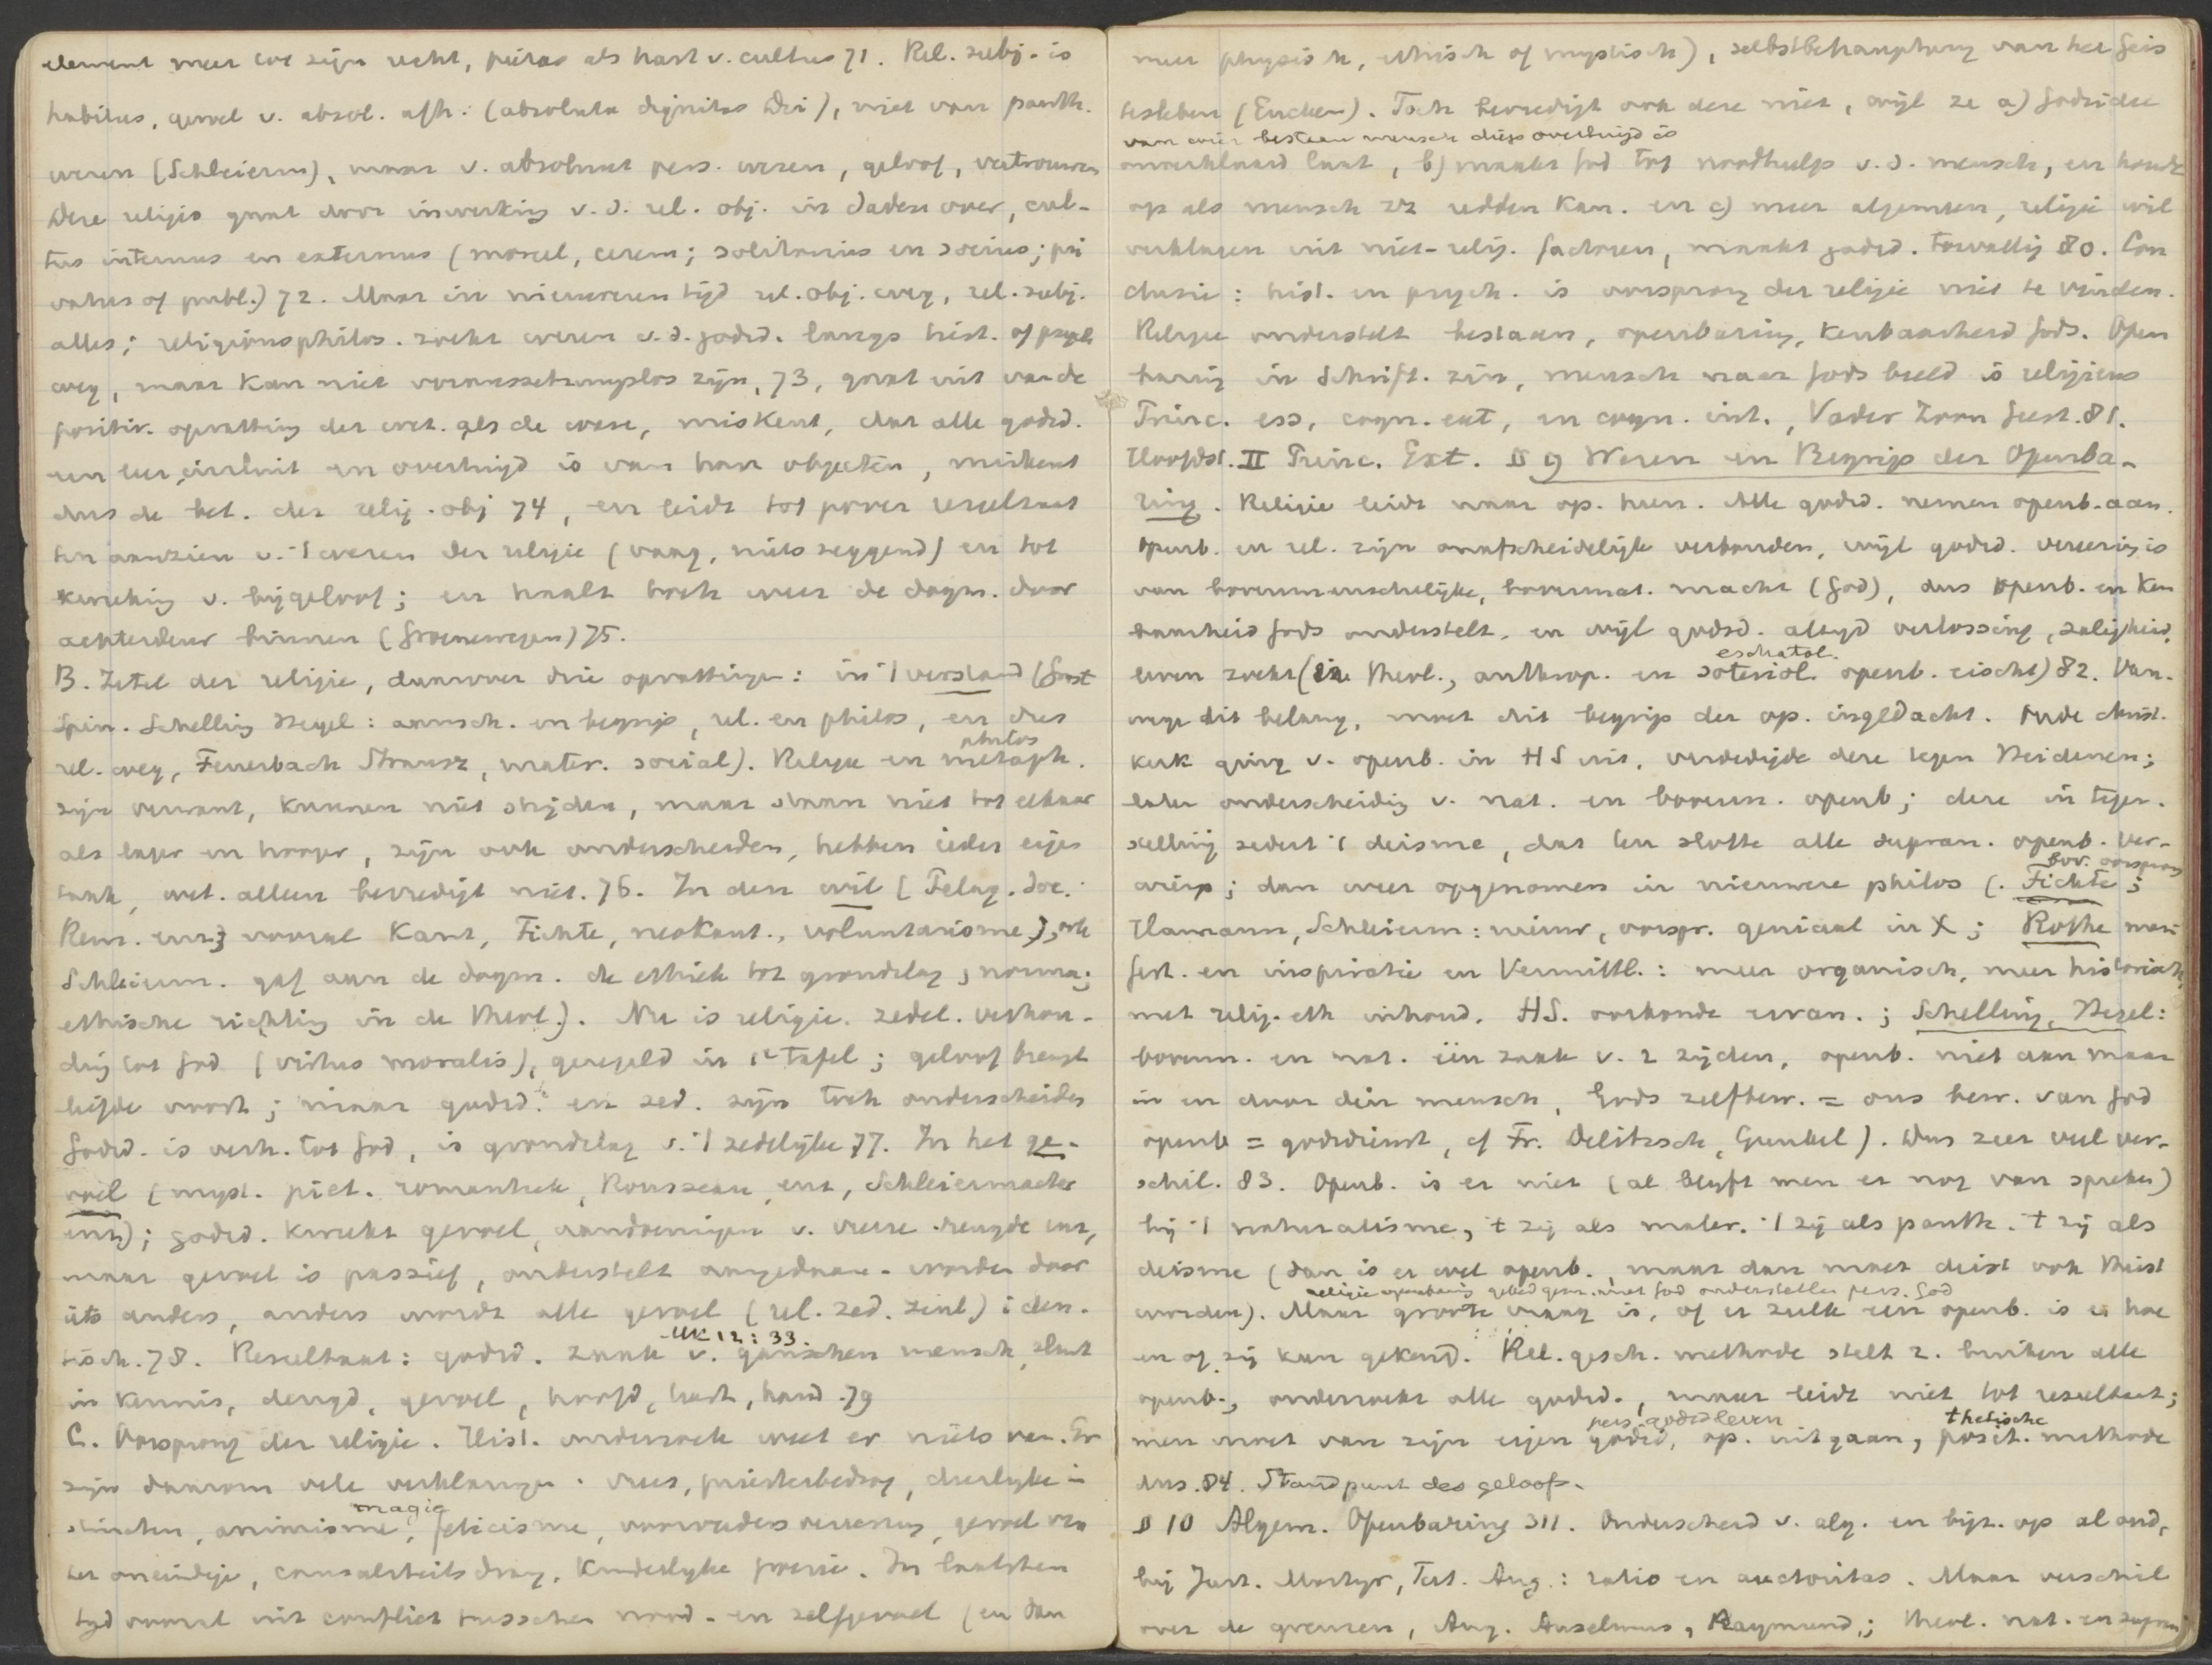 element meer tot zijn recht, pietas als hart v. cultus 71. Rel. subj. is
habitus, gevoel v. absol. afh: (absoluta dignitas Dei), niet van panth.
wezen (Schleierm), maar v. absoluut pers. wezen, geloof, vertrouwen
Deze religio gaat door inwerking v. d. rel. obj. in daden over, cul-
tus internus en externus (moreel, cerem; solitarius en socius; pri
vatus of publ.) 72. Maar in nieuweren tijd rel. obj. weg, rel. subj.
alles; religionsphilos. zoekt wezen v. d. godsd. langs hist. of psych
weg, maar kan niet voraussetzungslos zijn, 73, gaat uit van de
positiv. opvatting der wet. als de ware, miskent, dat alle godsd.
een leer insluit en overtuigd is van haar objecten, miskent
dus de bet. der relig. obj 74, en leidt tot pover resultaat
ten aanzien v. 't wezen der religie (vaag, nietszeggend) en tot
kweeking v. bijgeloof; en haalt toch weer de dogm. door
achterdeur binnen (Groenewegen) 75.
B. Zetel der religie, daarover drie opvattingen: in 't verstand (Gnost
Spin. Schelling Hegel: aansch. en begrip, rel. en philos, en dus
philos
rel. weg, Feuerbach Strausz, mater. social). Religie en metaph.
zijn verwant, kunnen niet strijden, maar staan niet tot elkaar
als lager en hooger, zijn ook onderscheiden, hebben ieder eigen
taak, wet. alleen bevredigt niet. 76. In den wil (Pelag. Soc.
Rem. enz; vooral Kant, Fichte, neokant., voluntarisme), ook
Schleierm. gaf aan de dogm. de ethiek tot grondslag, norma;
ethische richting in de theol.). Nu is religie zedel. verhou-
ding tot God (virtus moralis), geregeld in 1e tafel; geloof brengt
liefde voort; maar godsd. en zed. zijn toch onderscheiden
Godsd. is verh. tot God, is grondslag v. 't zedelijke 77. In het ge-
voel (myst. piet. romantiek, Rousseau, enz, Schleiermacher
enz); godsd. kweekt gevoel, aandoeningen v. vreeze vreugde enz,
maar gevoel is passief, onderstelt aangedaan-worden door
iets anders, anders wordt alle gevoel (rel. zed. zinl) iden-
Mk 12:33.
tisch. 78. Resultaat: godsd. zaak v. ganschen mensch, sluit
in kennis, deugd, gevoel, hoofd, hart, hand. 79
C. Oorsprong der religie. Hist. onderzoek weet er niets van. Er
zijn daarom vele verklaringen. vrees, priesterbedrog, dierlijke in
magie
stincten, animisme, feticisme, voorvaders vereering, gevoel van
het oneindige, causaliteitsdrang, kinderlijke poezie. In laatsten
tijd vooral uit conflict tusschen nood- en zelfgevoel (en dan
meer physisch, ethisch of mystisch), selbstbehauptung van het Geis
tesleben (Eucken). Toch bevredigt ook deze niet, wijl ze a) Godsidee
van wier bestaan mensch diep overtuigd is
onverklaard laat, b) maakt God tot noodhulp v. d. mensch, en houdt
op als mensch zz redden kan. en c) meer algemeen, religie wil
verklaren uit niet-relig. factoren, maakt godsd. toevallig 80. Con
clusie: hist. en psych. is oorsprong der religie niet te vinden.
Religie onderstelt bestaan, openbaring, kenbaarheid Gods. Open
baring in Schrift. zin, mensch naar Gods beeld is religieus
Princ. ess, cogn. ext, en cogn. int., Vader Zoon Geest. 81.
Hoofdst. II Princ. Ext. § 9 Wezen en Begrip der Openba-
ring. Religie leidt naar op. heen. Alle godsd. nemen openb. aan.
Openb. en rel. zijn onafscheidelijk verbonden, wijl godsd. vereering is
van bovenmenschelijke, bovennat. macht (God), dus openb. en ken
baarheid Gods onderstelt, en wijl godsd. altijd verlossing, zaligheid,
eschatol.
leven zoekt (in theol., anthrop. en soteriol. openb. eischt) 82. Van-
wege dit belang, moet dit begrip der op. ingedacht. Oude christ.
kerk ging v. openb. in HS uit, verdedigde deze tegen Heidenen;
later onderscheiding v. nat. en bovenn. openb; deze in tegen-
stelling sedert 't deisme, dat ten slotte alle supran. openb. ver-
bov. oorsprong
wierp; dan weer opgenomen in nieuwere philos (. Fichte;
Hamann, Schleierm: nieuw, oorspr. geniaal in X; Rothe mani
fest. en inspiratie en Vermittl.: meer organisch, meer historisch,
met relig. eth inhoud. HS. oorkonde ervan.; Schelling, Hegel:
bovenn. en nat. één zaak v. 2 zijden, openb. niet aan maar
in en door den mensch, Gods zelfbew. = ons bew. van God
openb = godsdienst, cf Fr. Delitzsch, Gunkel). Dus zeer veel ver-
schil. 83. Openb. is er niet (al blijft men er nog van spreken)
bij 't naturalisme, 't zij als mater. 't zij als panth. 't zij als
deisme (dan is er wel openb., maar dan moet deist ook theist
religie openbaring gebed gem. met God onderstellen pers. God
worden). Maar groote vraag is, of er zulk een openb. is en hoe
en of zij kan gekend. Rel. gesch. methode stelt z. buiten alle
openb., onderzoekt alle godsd., maar leidt niet tot resultaat;
pers. godsd leven thetische
men moet van zijn eigen godsd, op. uitgaan, posit. methode
dus. 84. Standpunt des geloofs.
§ 10 Algem. Openbaring 311. Onderscheid v. alg. en bijz. op al oud,
bij Just. Martyr, Tert. Aug.: ratio en auctoritas. Maar verschil
over de grenzen, Aug. Anselmus, Raymund,; theol. nat. en supran